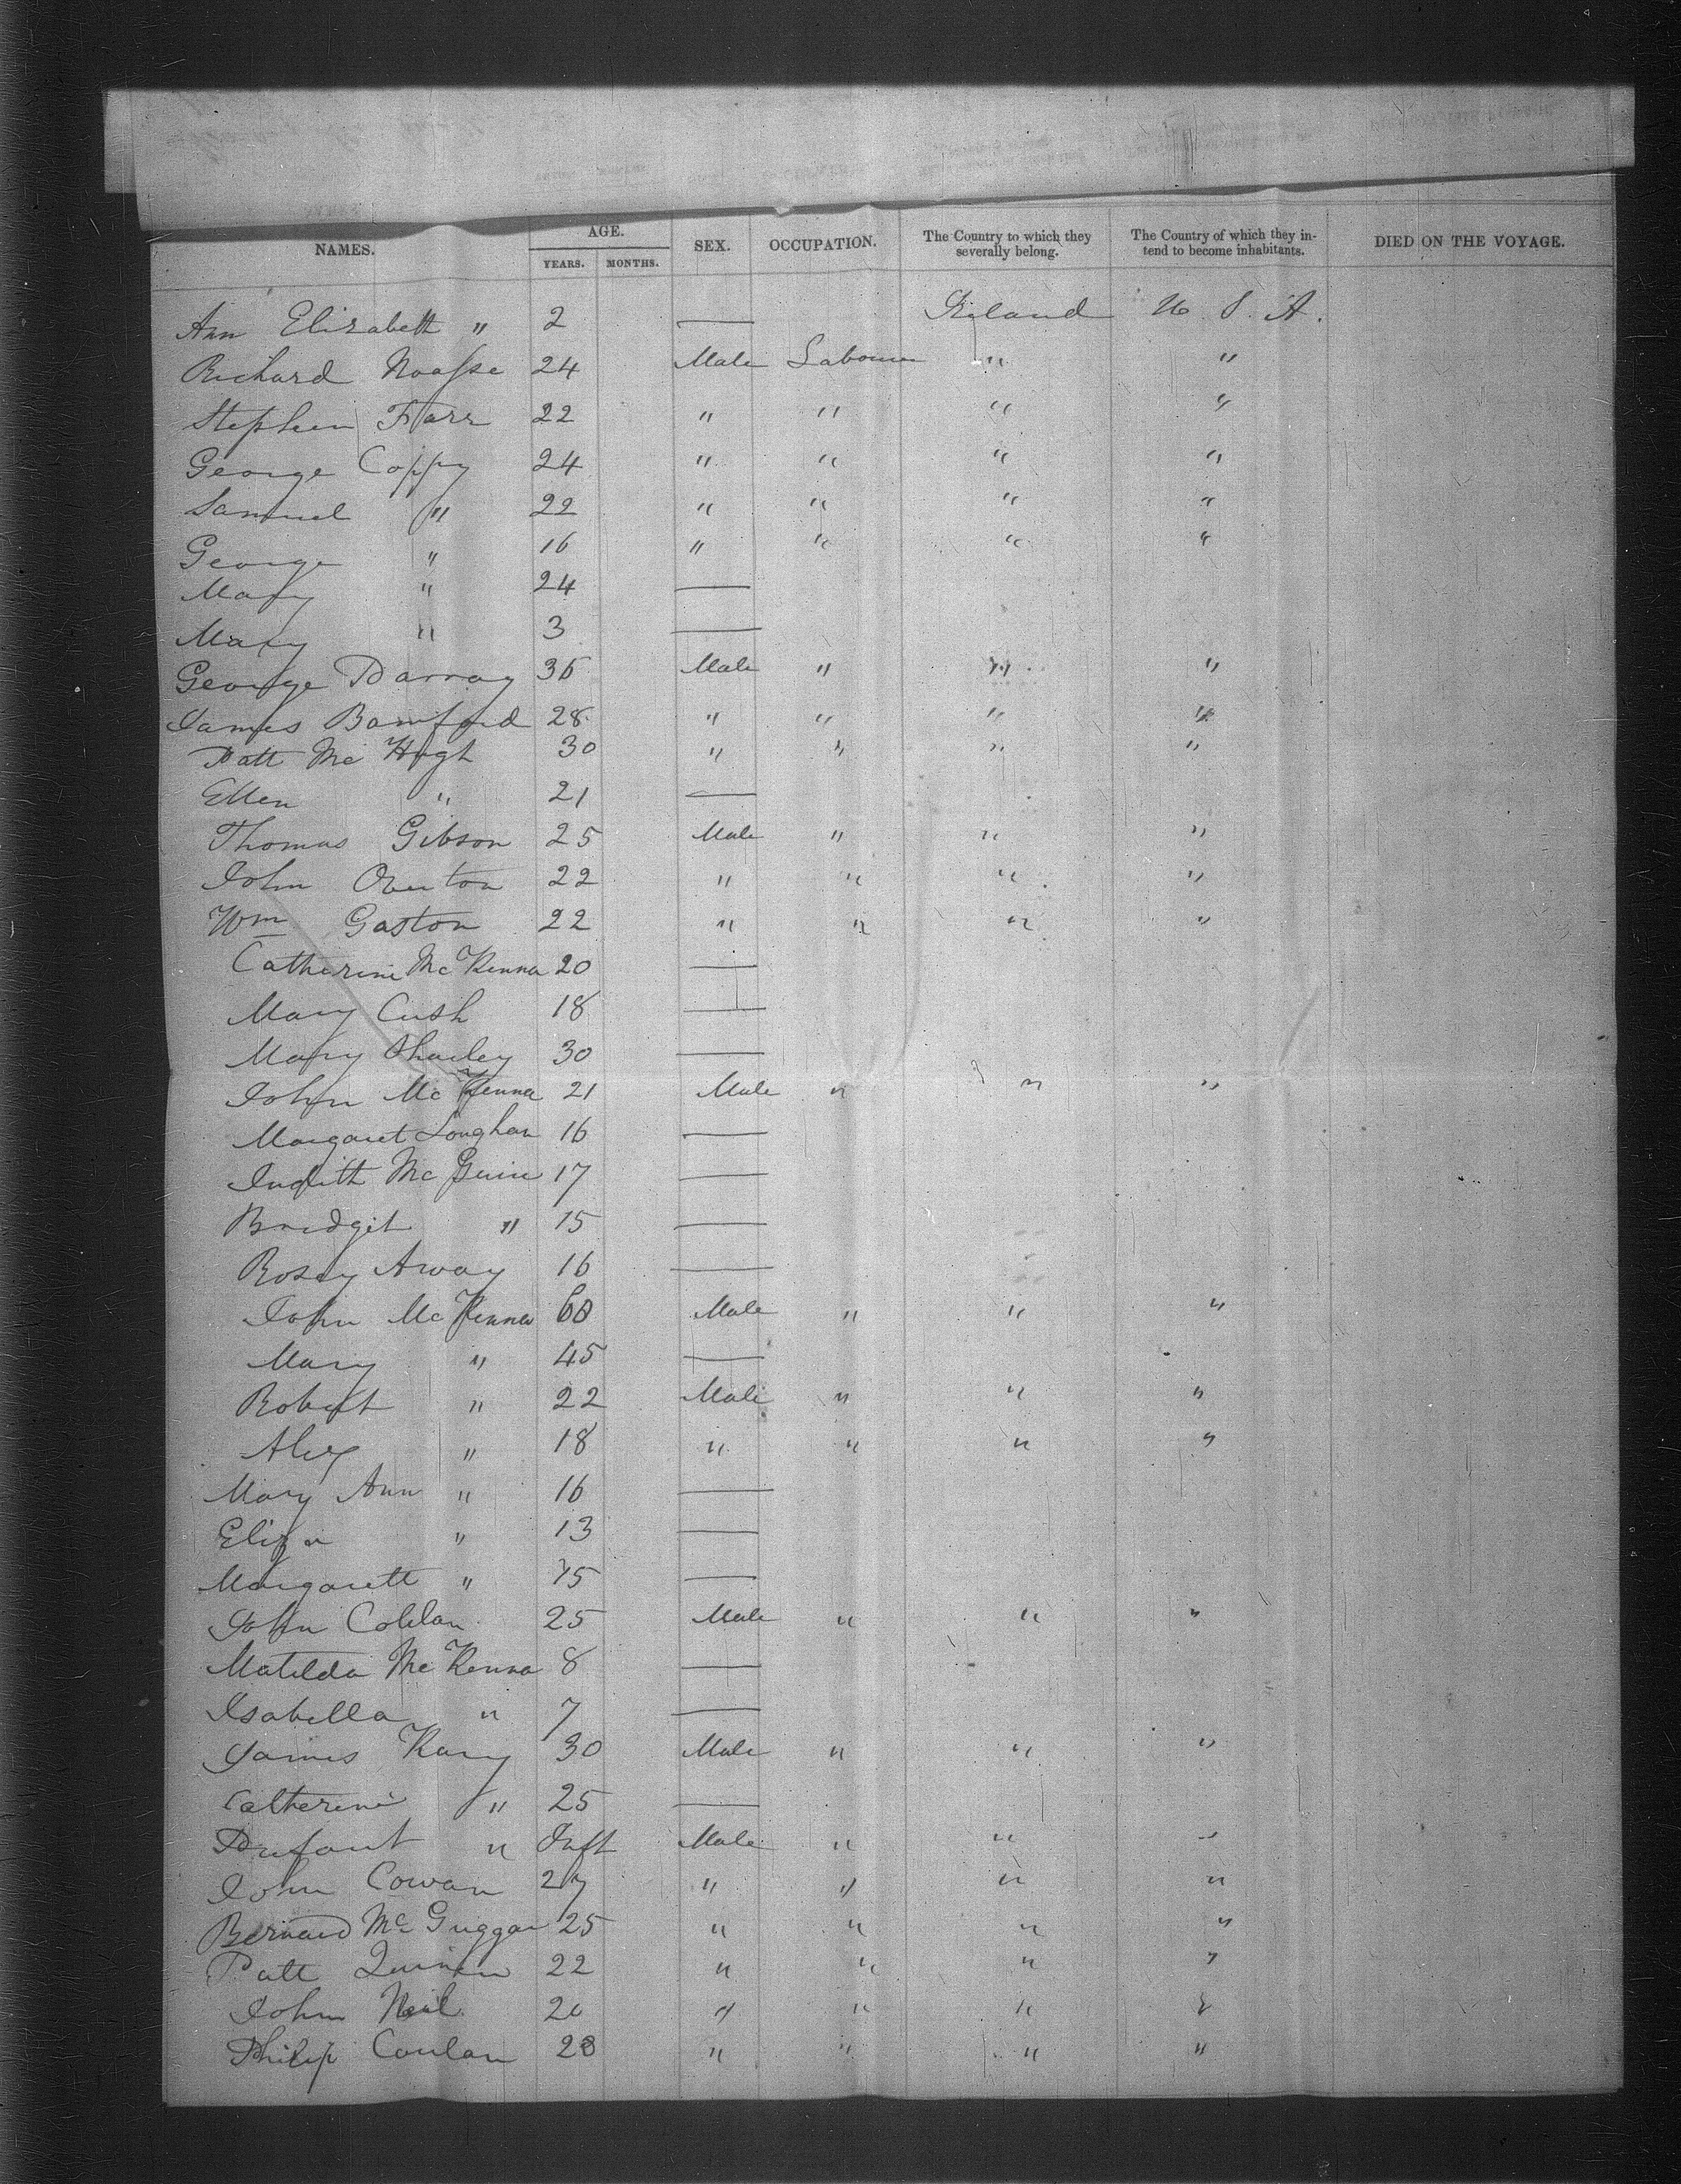 NAMES. AGE. YEARS. MONTHS. SEX. OCCUPATION. The Country to which they severally belong. The Country of which they intend to become inhabitants. DIED ON THE VOYAGE.
Ann Elizabeth " 2 — Ireland U. S. A.
Richard 24 Male Labourer " "
Stephen Farr 22 " " " "
George Coppy 24 " " " "
Samuel " 22 " " " "
George " 16 " " " "
Mary " 24 —
Mary " 3 —
George Darray 36 Male " " "
James Bamford 28 " " " "
Patt Mc Hugh 30 " " " "
Ellen " 21 —
Thomas Gibson 25 Male " " "
John Overton 22 " " " "
Wm Gaston 22 " " " "
Catherine Mc Kenna 20 —
Mary Cush 18 —
Mary 30 —
John Mc Kenna 21 Male " " "
Margaret Loughan 16 —
Judith Mc Guire 17 —
Bridget " 15 —
Rosey Away 16 —
John Mc Kenna 60 Male " " "
Mary " 45 —
Robert " 22 Male " " "
Alex " 18 " " " "
Mary Ann " 16 —
Eliza " 13 —
Margarett " 15 —
John 25 Male " " "
Matilda Mc Kenna 8 —
Isabella " 7 —
James Kary 30 Male " " "
Catherine " 25 —
Infant " Inft Male " " "
John Cowan 27 " " " "
Bernard Mc Guggan 25 " " " "
Patt Quinn 22 " " " "
John Neil 20 " " " "
Philip Conlan 28 " " " "